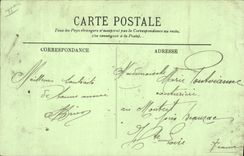 CARTE POSTALE
Tous les Pays étrangers n'acceptent pas la Correspondance au recto.
(Se renseigner à la Poste).
CORRESPONDANCE
ADRESSE
Mademoiselle
Marie
Meilleurs souhaits
de bonne année
couturière
au
près Beauzac
Hte Loire
France